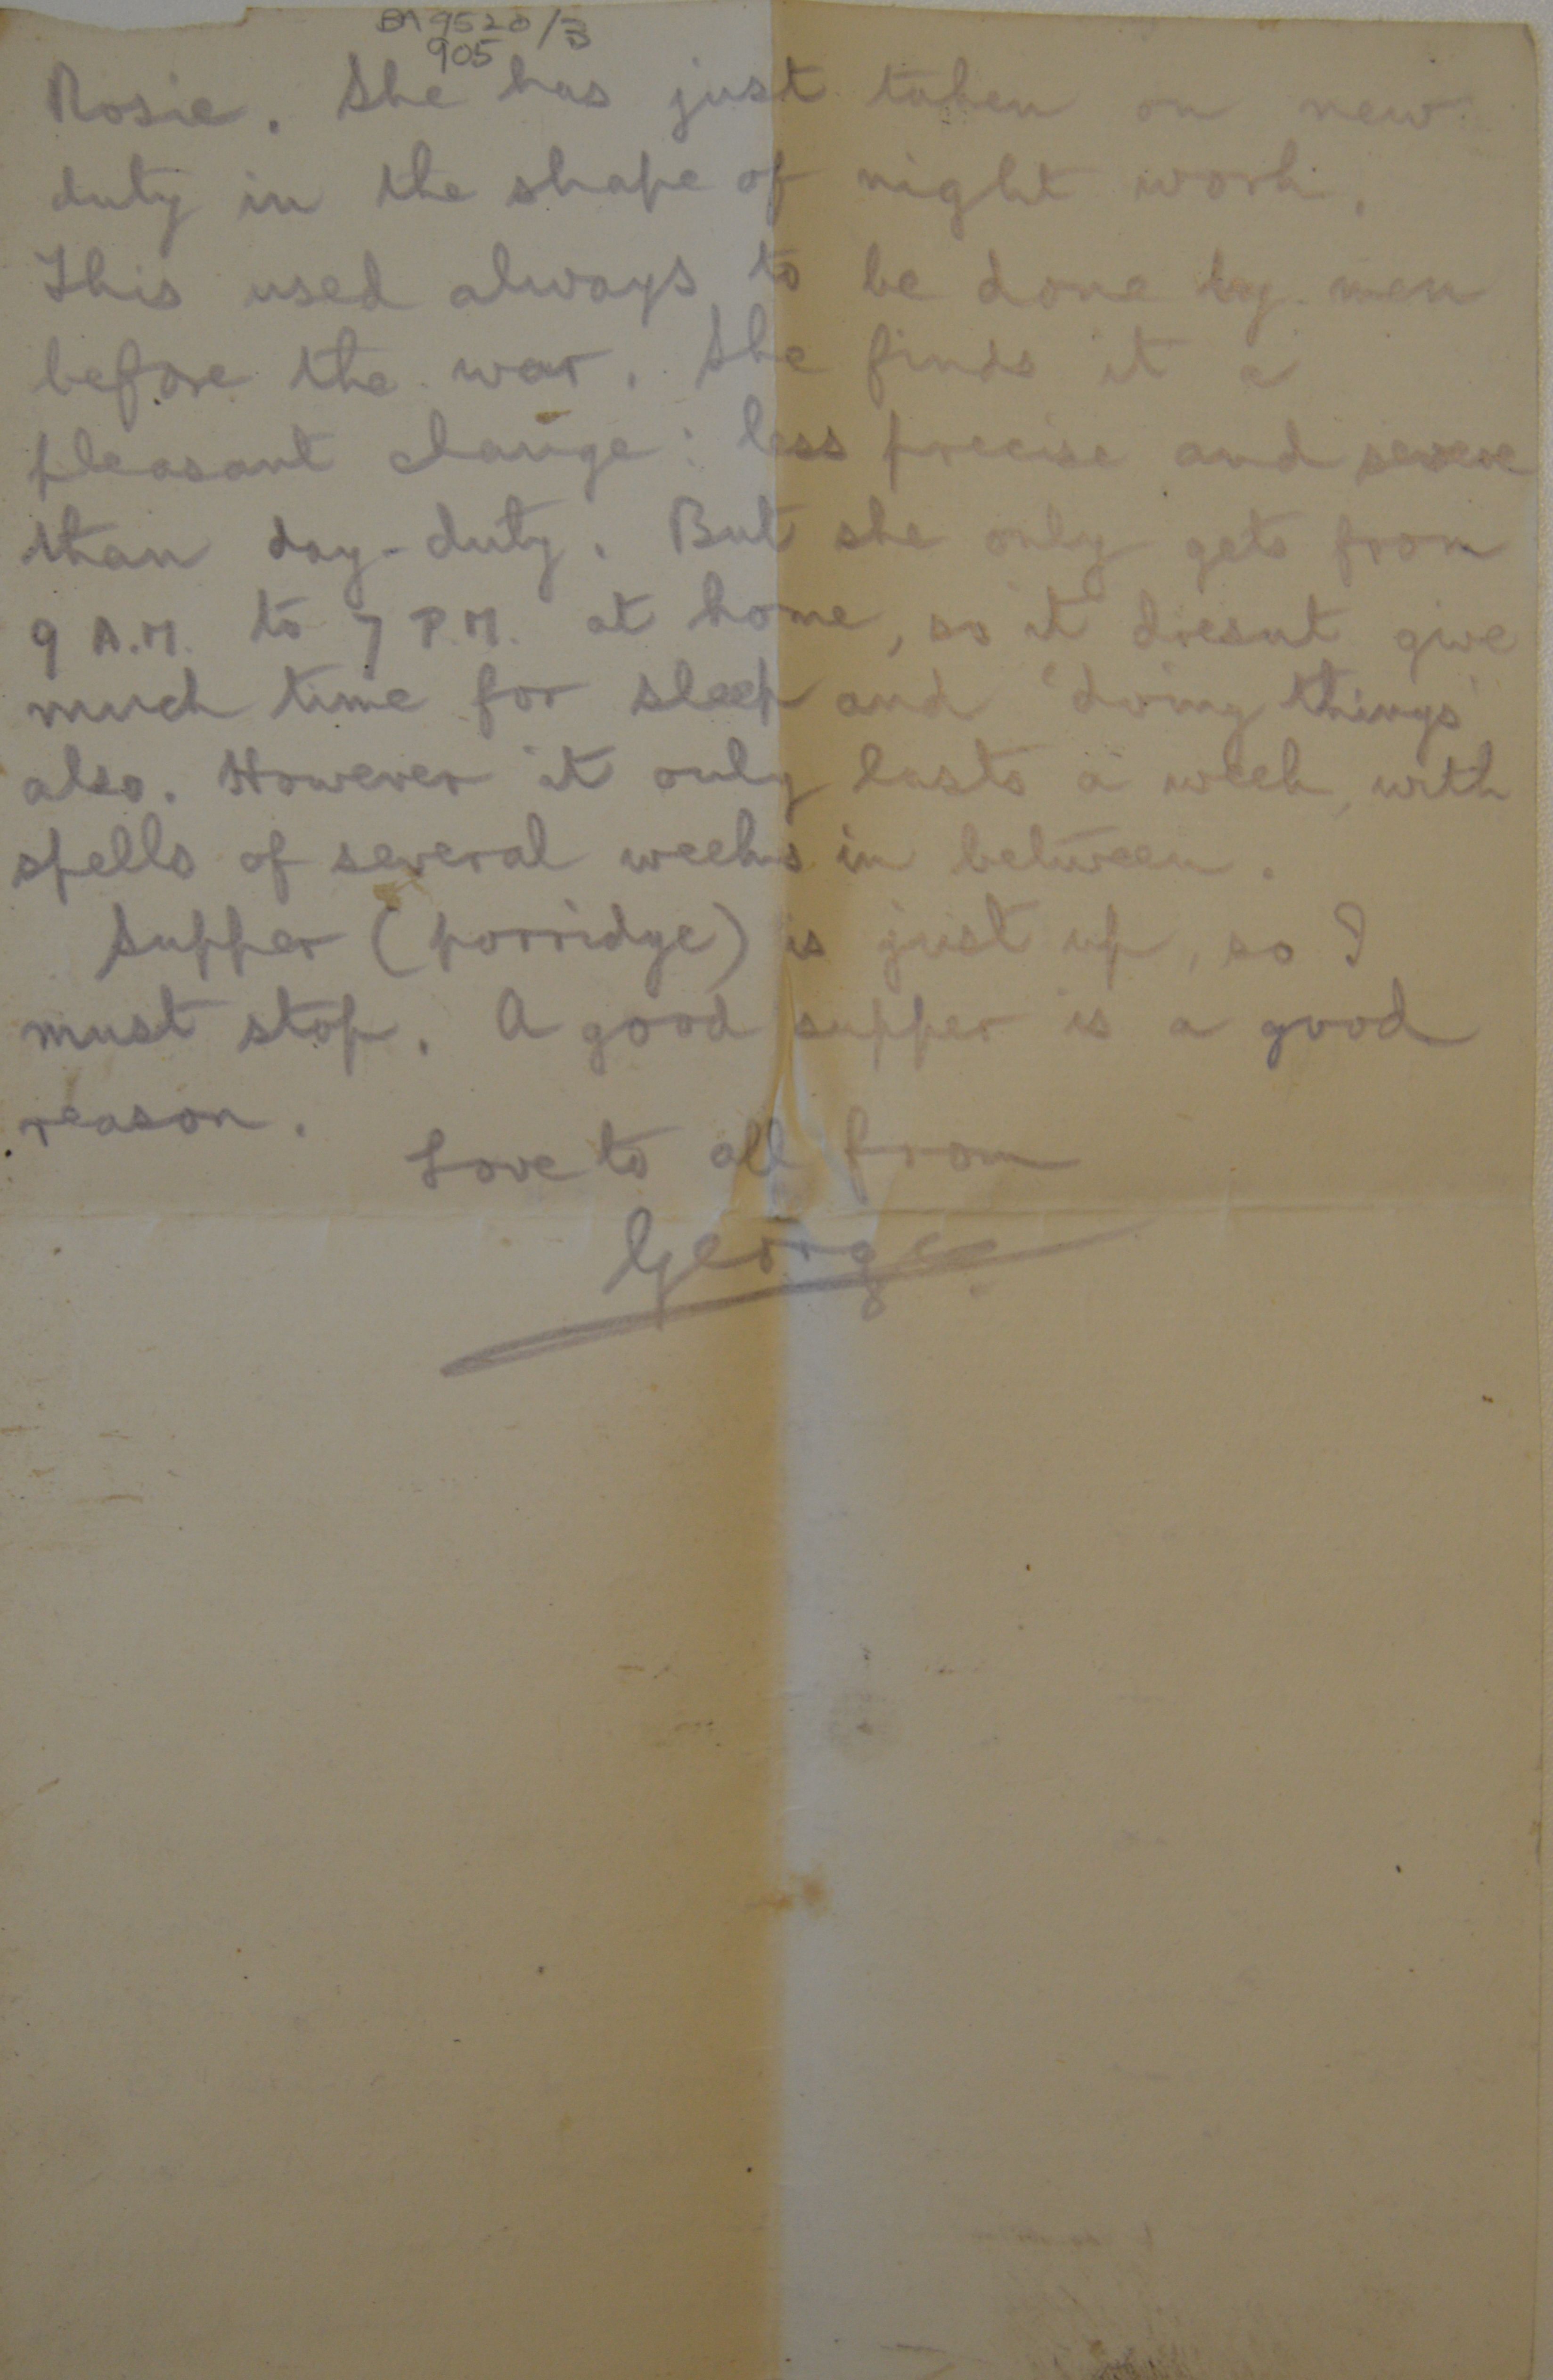 BA 9520/3
905
Rosie. She has just taken on new
duty in the shape of night work.
This used always to be done by men
before the war. She finds it a
pleasant change: less precise and severe
than day-duty. But she only gets from
9 A.M. to 7 P.M. at home, so it doesnt give
much time for sleep and 'doing things'
also. However it only lasts a week, with
spells of several weeks in between.
Supper (porridge) is just up, so I
must stop. A good supper is a good
reason.
Love to all from
George.